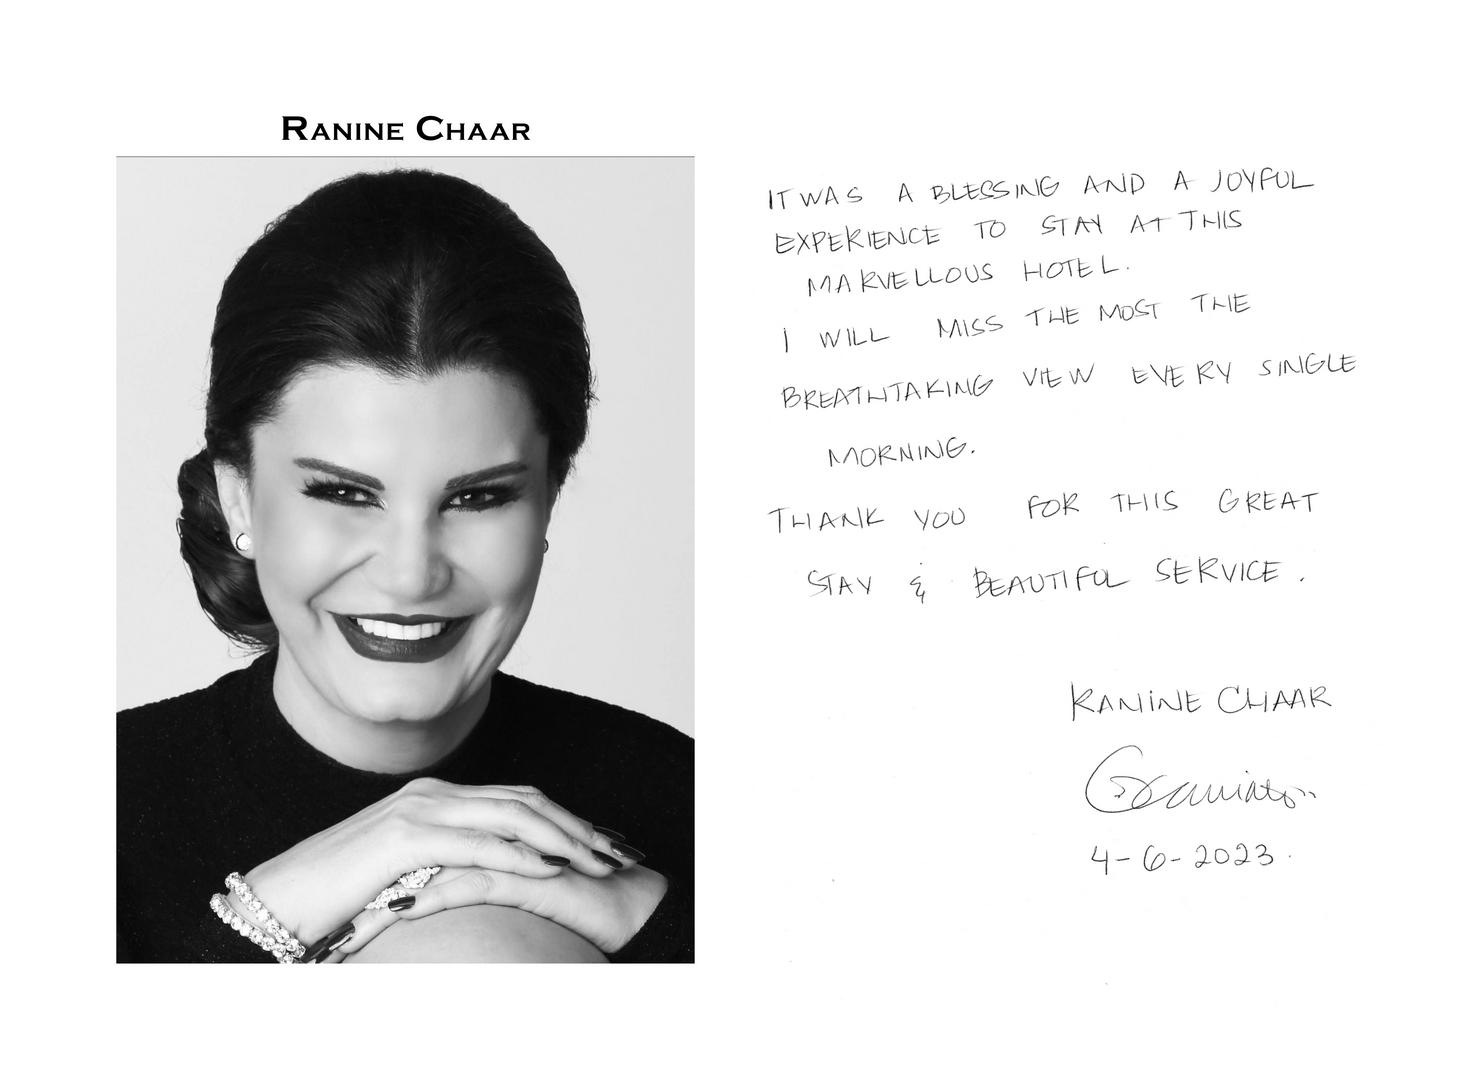 RANINE CHAAR
IT WAS A BLESSING AND A JOYFUL
EXPERIENCE TO STAY AT THIS
MARVELLOUS HOTEL.
I WILL MISS THE MOST THE
BREATHTAKING VIEW EVERY SINGLE
MORNING.
THANK YOU FOR THIS GREAT
STAY & BEAUTIFUL SERVICE.
RANINE CHAAR
4-6-2023.